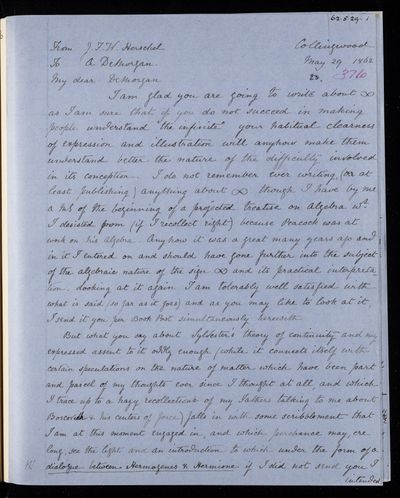 62.5.29.1
From J.F.W. Herschel Collingwood
To A DeMorgan May 29 1862
My dear DeMorgan 23. 376
I am glad you are going to write about ∞
as I am sure that if you do not succeed in making
people understand the infinite your habitual clearness
of expression and illustration will anyhow make them
understand better the nature of the difficulty involved
in its conception. I do not remember ever writing (or at
least publishing) anything about ∞ though I have by me
a MS of the beginning of a projected treatise on Algebra wh.
I desisted from (if I recollect right) because Peacock was at
work on his algebra. Anyhow it was a great many years ago and
in it I entered on and should have gone further into the subject
of the algebraic nature of the sign ∞ and its practical interpreta
tion. Looking at it again I am tolerably well satisfied with
what is said (so far as it goes) and as you may like to look at it
I send it you per Book Post simultaneously herewith.
But what you say about Sylvester's theory of continuity and my
expressed assent to it oddly enough (while it connects itself with
certain speculations on the nature of matter which have been part
and parcel of my thoughts ever since I thought at all and which
I trace up to a hazy recollection of my father talking to me about
Boscovich & his centers of force) falls in with some scribblement that
I am at this moment engaged in, and which perchance may, ere
long, see the light and an introduction to which under the form of a
dialogue between Hermogenes & Hermione if I did not send you I
intended